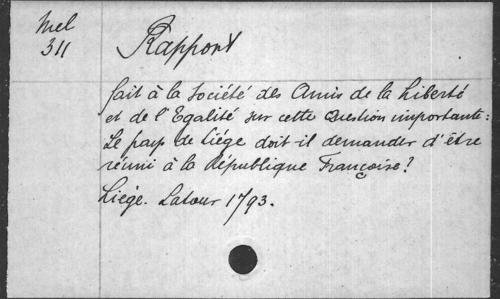 Mel
311
Rapport
fait à la Société des Amis de la Liberté
et de l'Egalité sur cette question importante:
Le pays de Liége doit il demander d'être
réuni à la République Françoise?
Liége. Latour 1793.